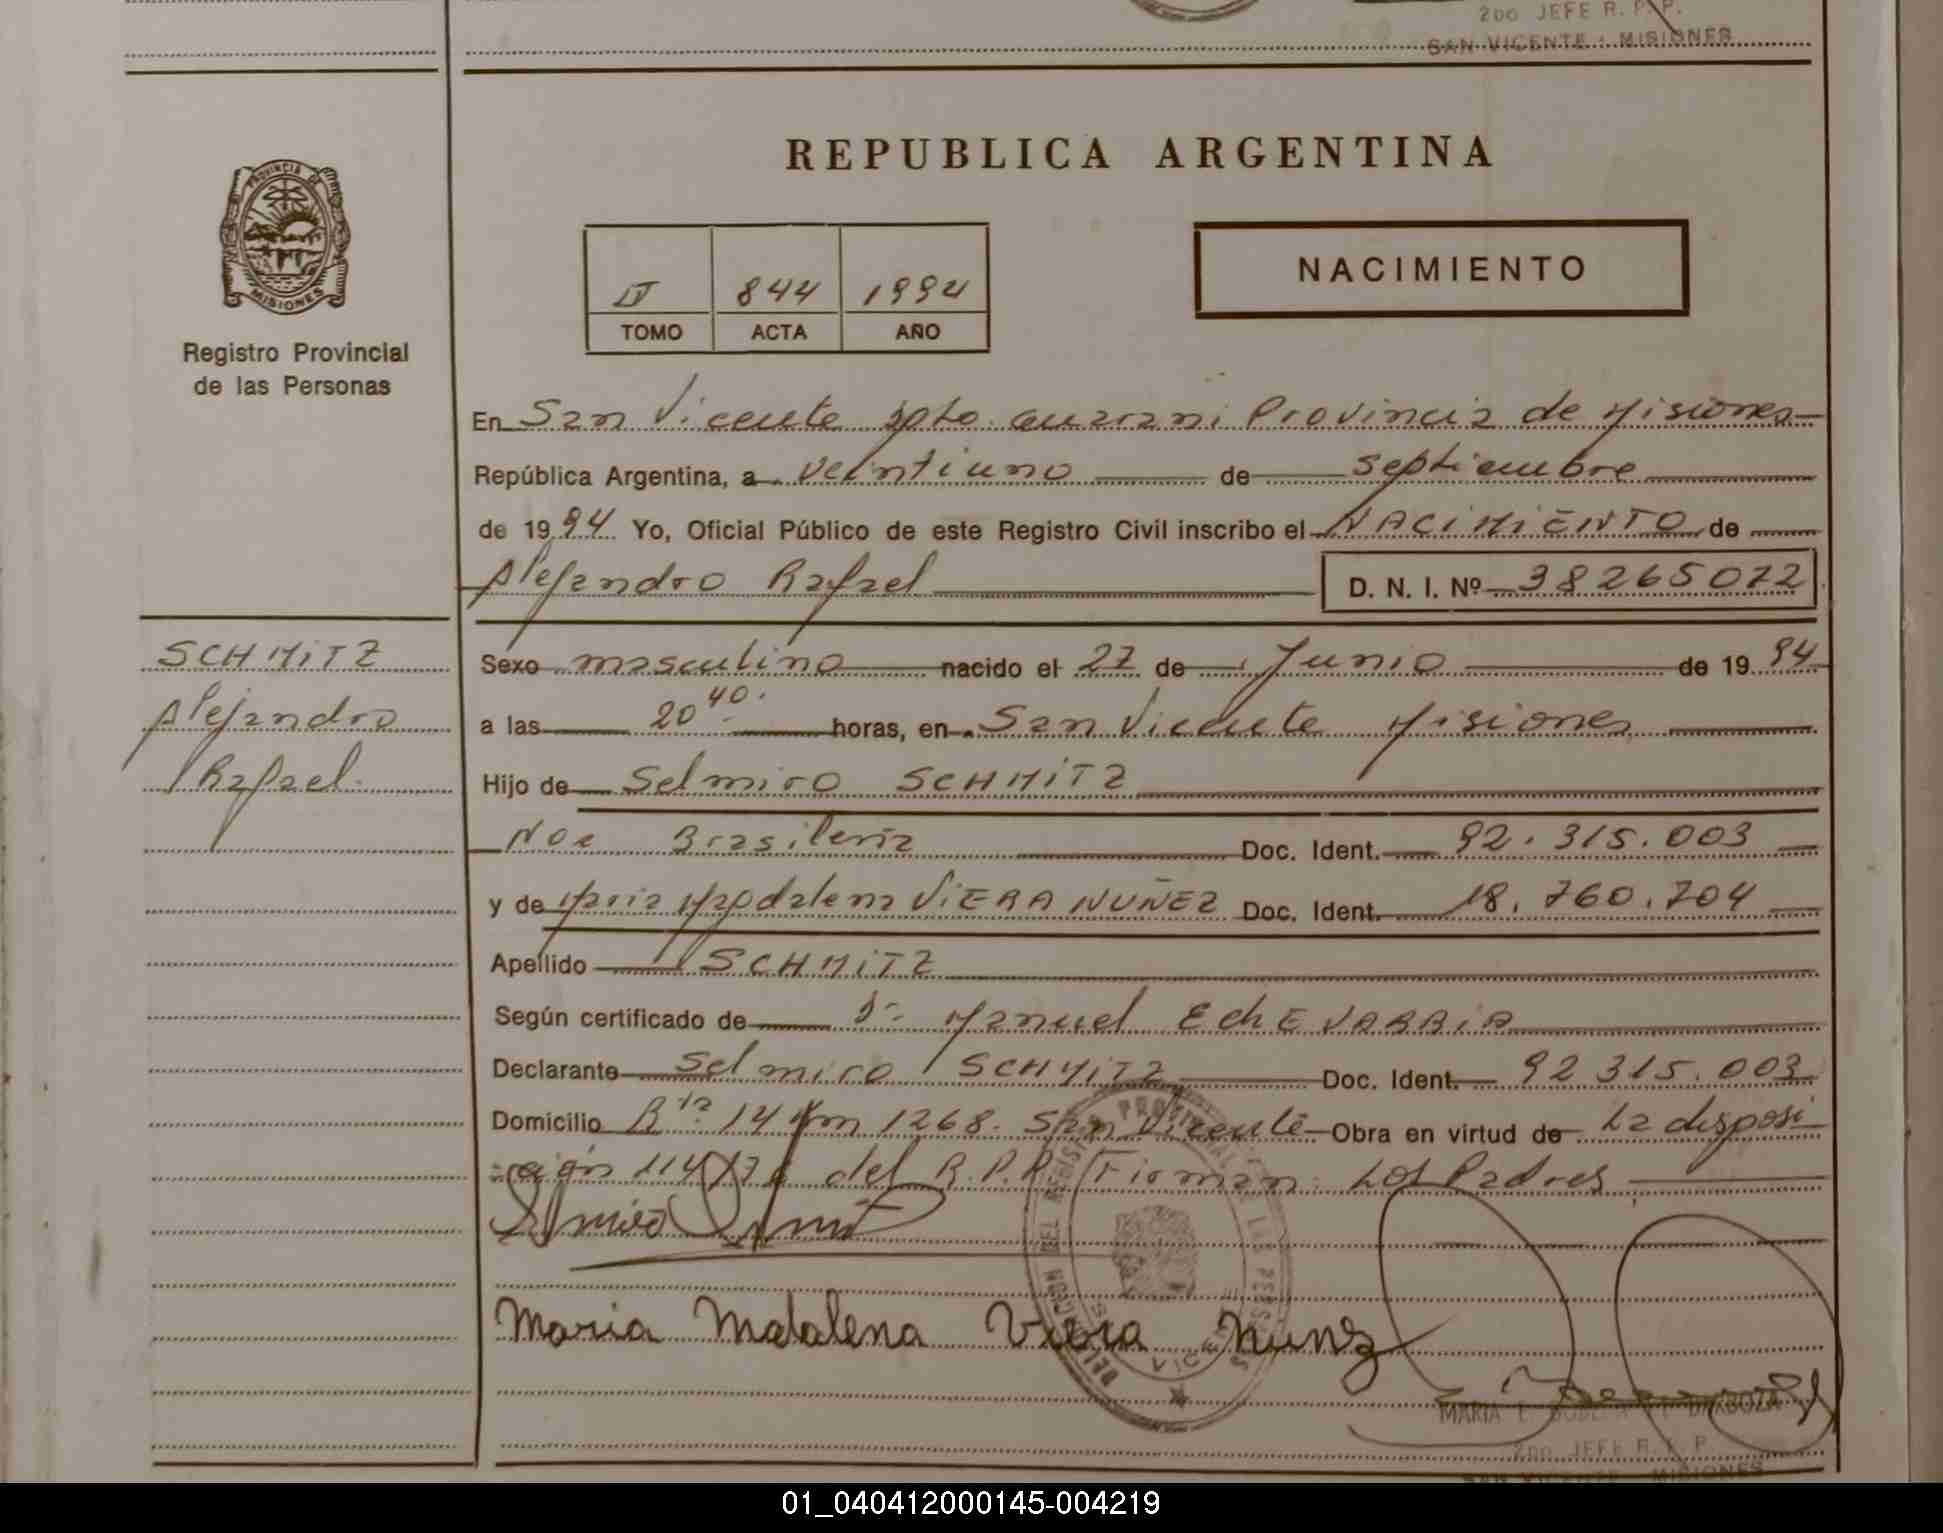 2do JEFE R. P. P.
SAN VICENTE - MISIONES
REPUBLICA ARGENTINA
PROVINCIA DE
MISIONES
Registro Provincial
de las Personas
IV 844 1994
TOMO ACTA AÑO
NACIMIENTO
En San Vicente Dpto. Guarani Provincia de Misiones
República Argentina, a veintiuno de septiembre
de 1994 Yo, Oficial Público de este Registro Civil inscribo el NACIMIENTO de
Alejandro Rafael D. N. I. Nº 38265072
SCHMITZ
Alejandro
Rafael
Sexo masculino nacido el 27 de Junio de 1994
a las 20 40 horas, en San Vicente Misiones
Hijo de Selmiro SCHMITZ
Nac Brasileña Doc. Ident. 92.315.003
y de Maria Magdalena VIERA NUÑEZ Doc. Ident. 18.760.704
Apellido SCHMITZ
Según certificado de Dr. Manuel EChEVARRIA
Declarante Selmiro SCHMITZ Doc. Ident. 92 315.003
Domicilio Rta. 14 Km 1268. San Vicente Obra en virtud de La disposi
ción 114/76 del R.P.P. Firman: Los Padres
Maria Madalena Viera Nunz
MARIA E. BARBOZA
2do JEFE R. P. P.
SAN VICENTE - MISIONES
01_040412000145-004219